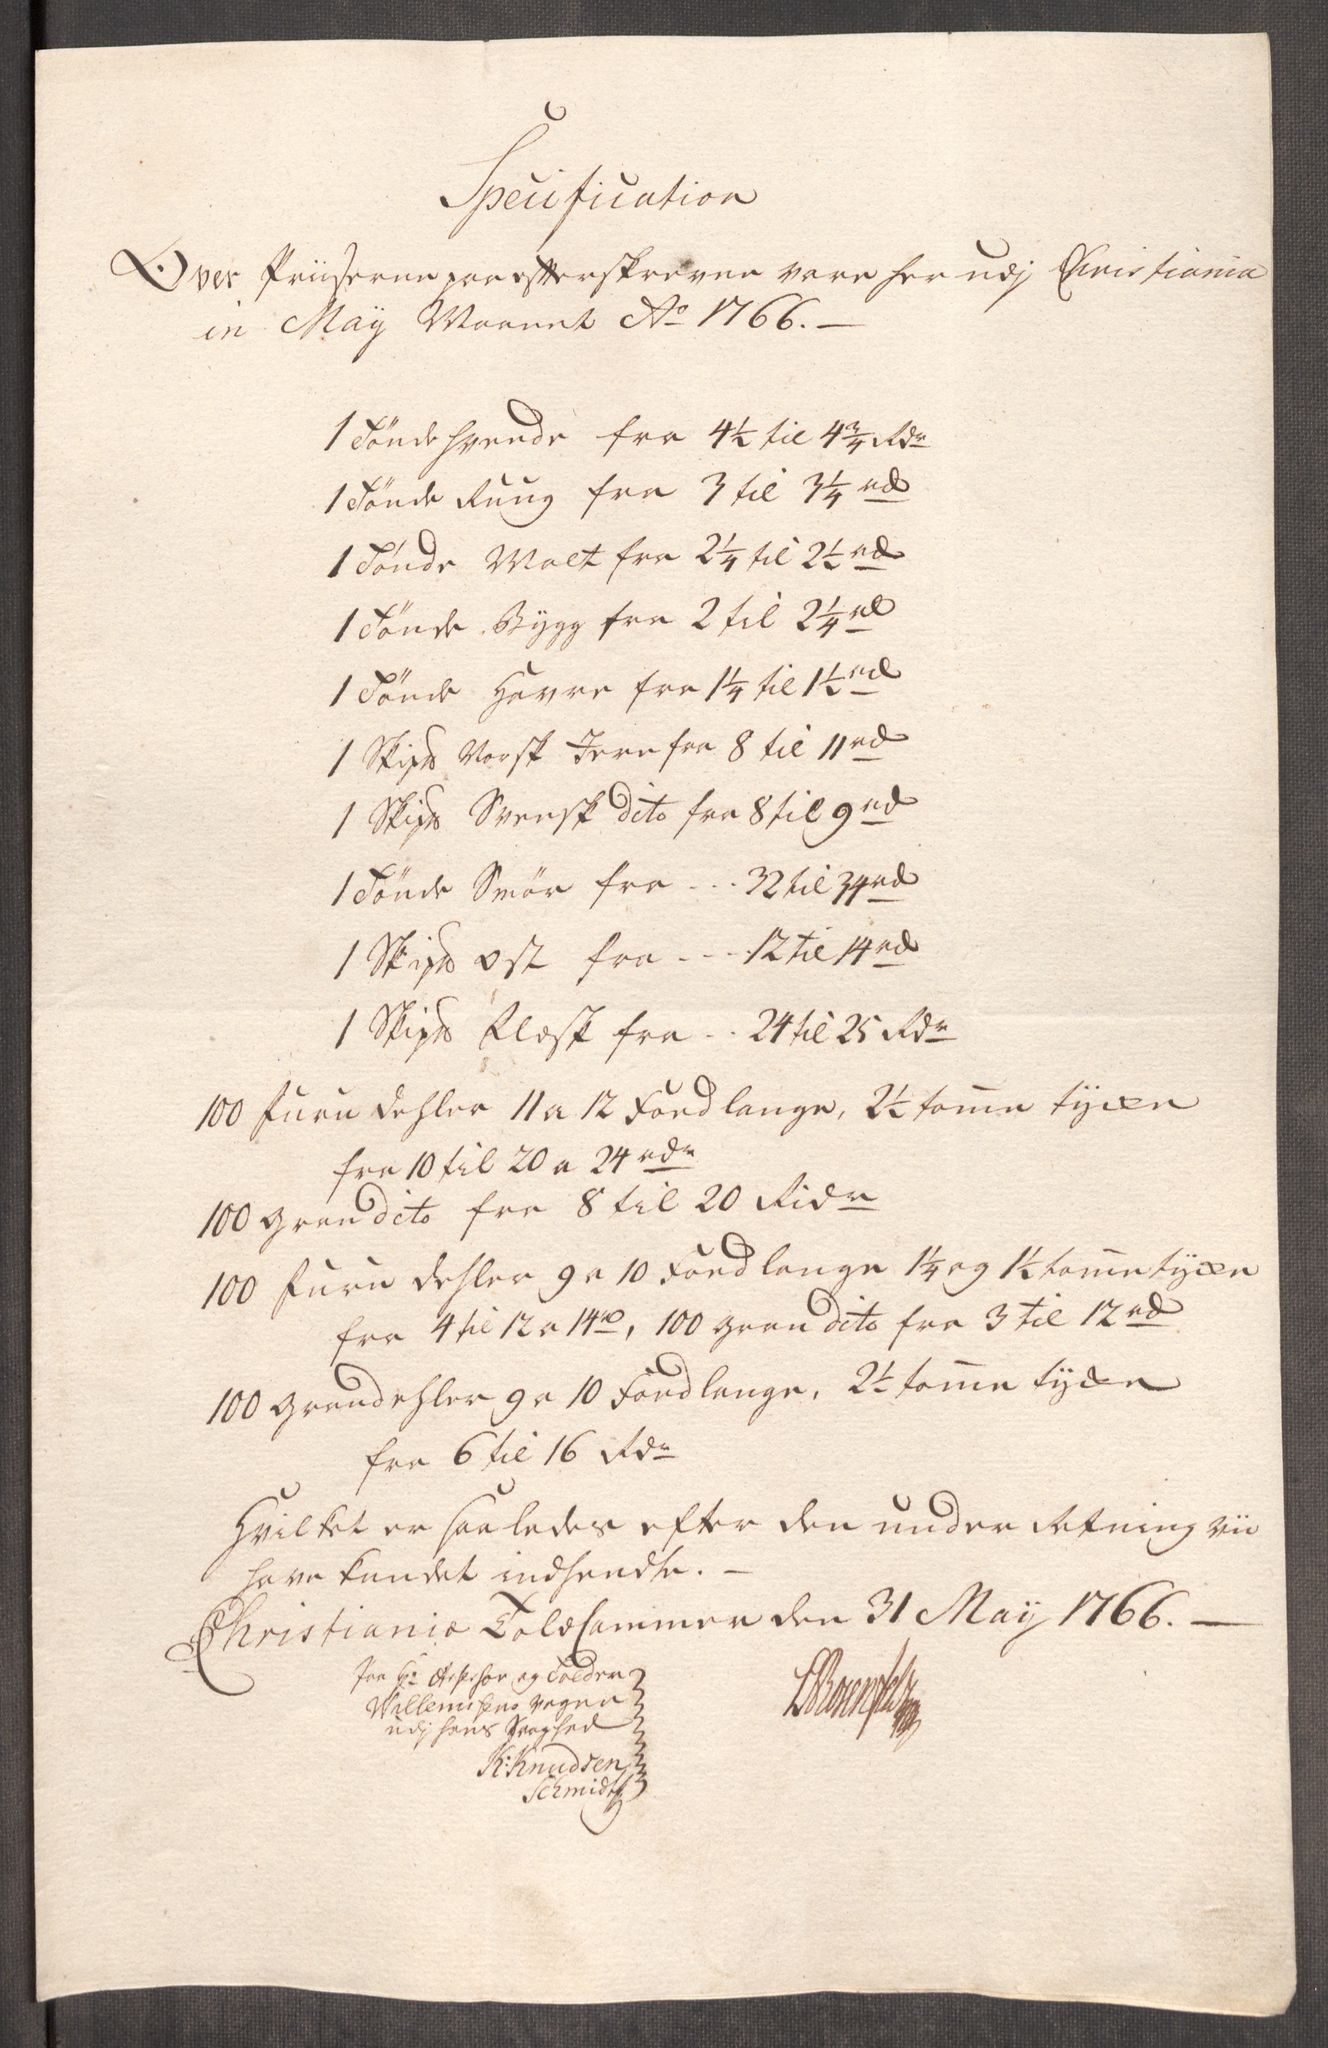 Specification
Over Priiserne paa efterskrevne vare her udj Christiania
in Maÿ Maanet Ao 1766. —
1 Tönde Hvede fra 4½ til 4¾ Rdr
1 Tönde Ruug fra 3 til 3¼ rd
1 Tönde Malt fra 2¼ til 2½ rd
1 Tönde Bygg fra 2 til 2¼ rd
1 Tönde Havre fra 1¼ til 1½ rd
1 Skipd Norsk Jern fra 8 til 11 rd
1 Skipd Svensk dito fra 8 til 9 rd
1 Tönde Smör fra - - - 32 til 34 rd
1 Skipd Ost fra - - - 12 til 14 rd
1 Skipd Flæsk fra - - 24 til 25 Rdr
100 furu dehler 11 a 12 Foed lange, 2½ tomme tÿcke
fra 10 til 20 a 24 rdr
100 gran dito fra 8 til 20 Ridr
100 furu dehler 9 a 10 Foed lange 1¼ og 1½ tomme tÿcke
fra 4 til 12 a 14 rd, 100 gran dito fra 3 til 12 rd
100 grandehler 9 a 10 Foed lange, 2½ tomme tÿcke
fra 6 til 16 Rdr
Hvilket er saaledes efter den under Retning vii
have kundet indhendte. —
Christiania Told Cammer den 31 Maÿ 1766. —
paa Hr Assessor og Tolder
Willemsens vegne
udj hans Svaghed
K: Knudsen
Schmidt